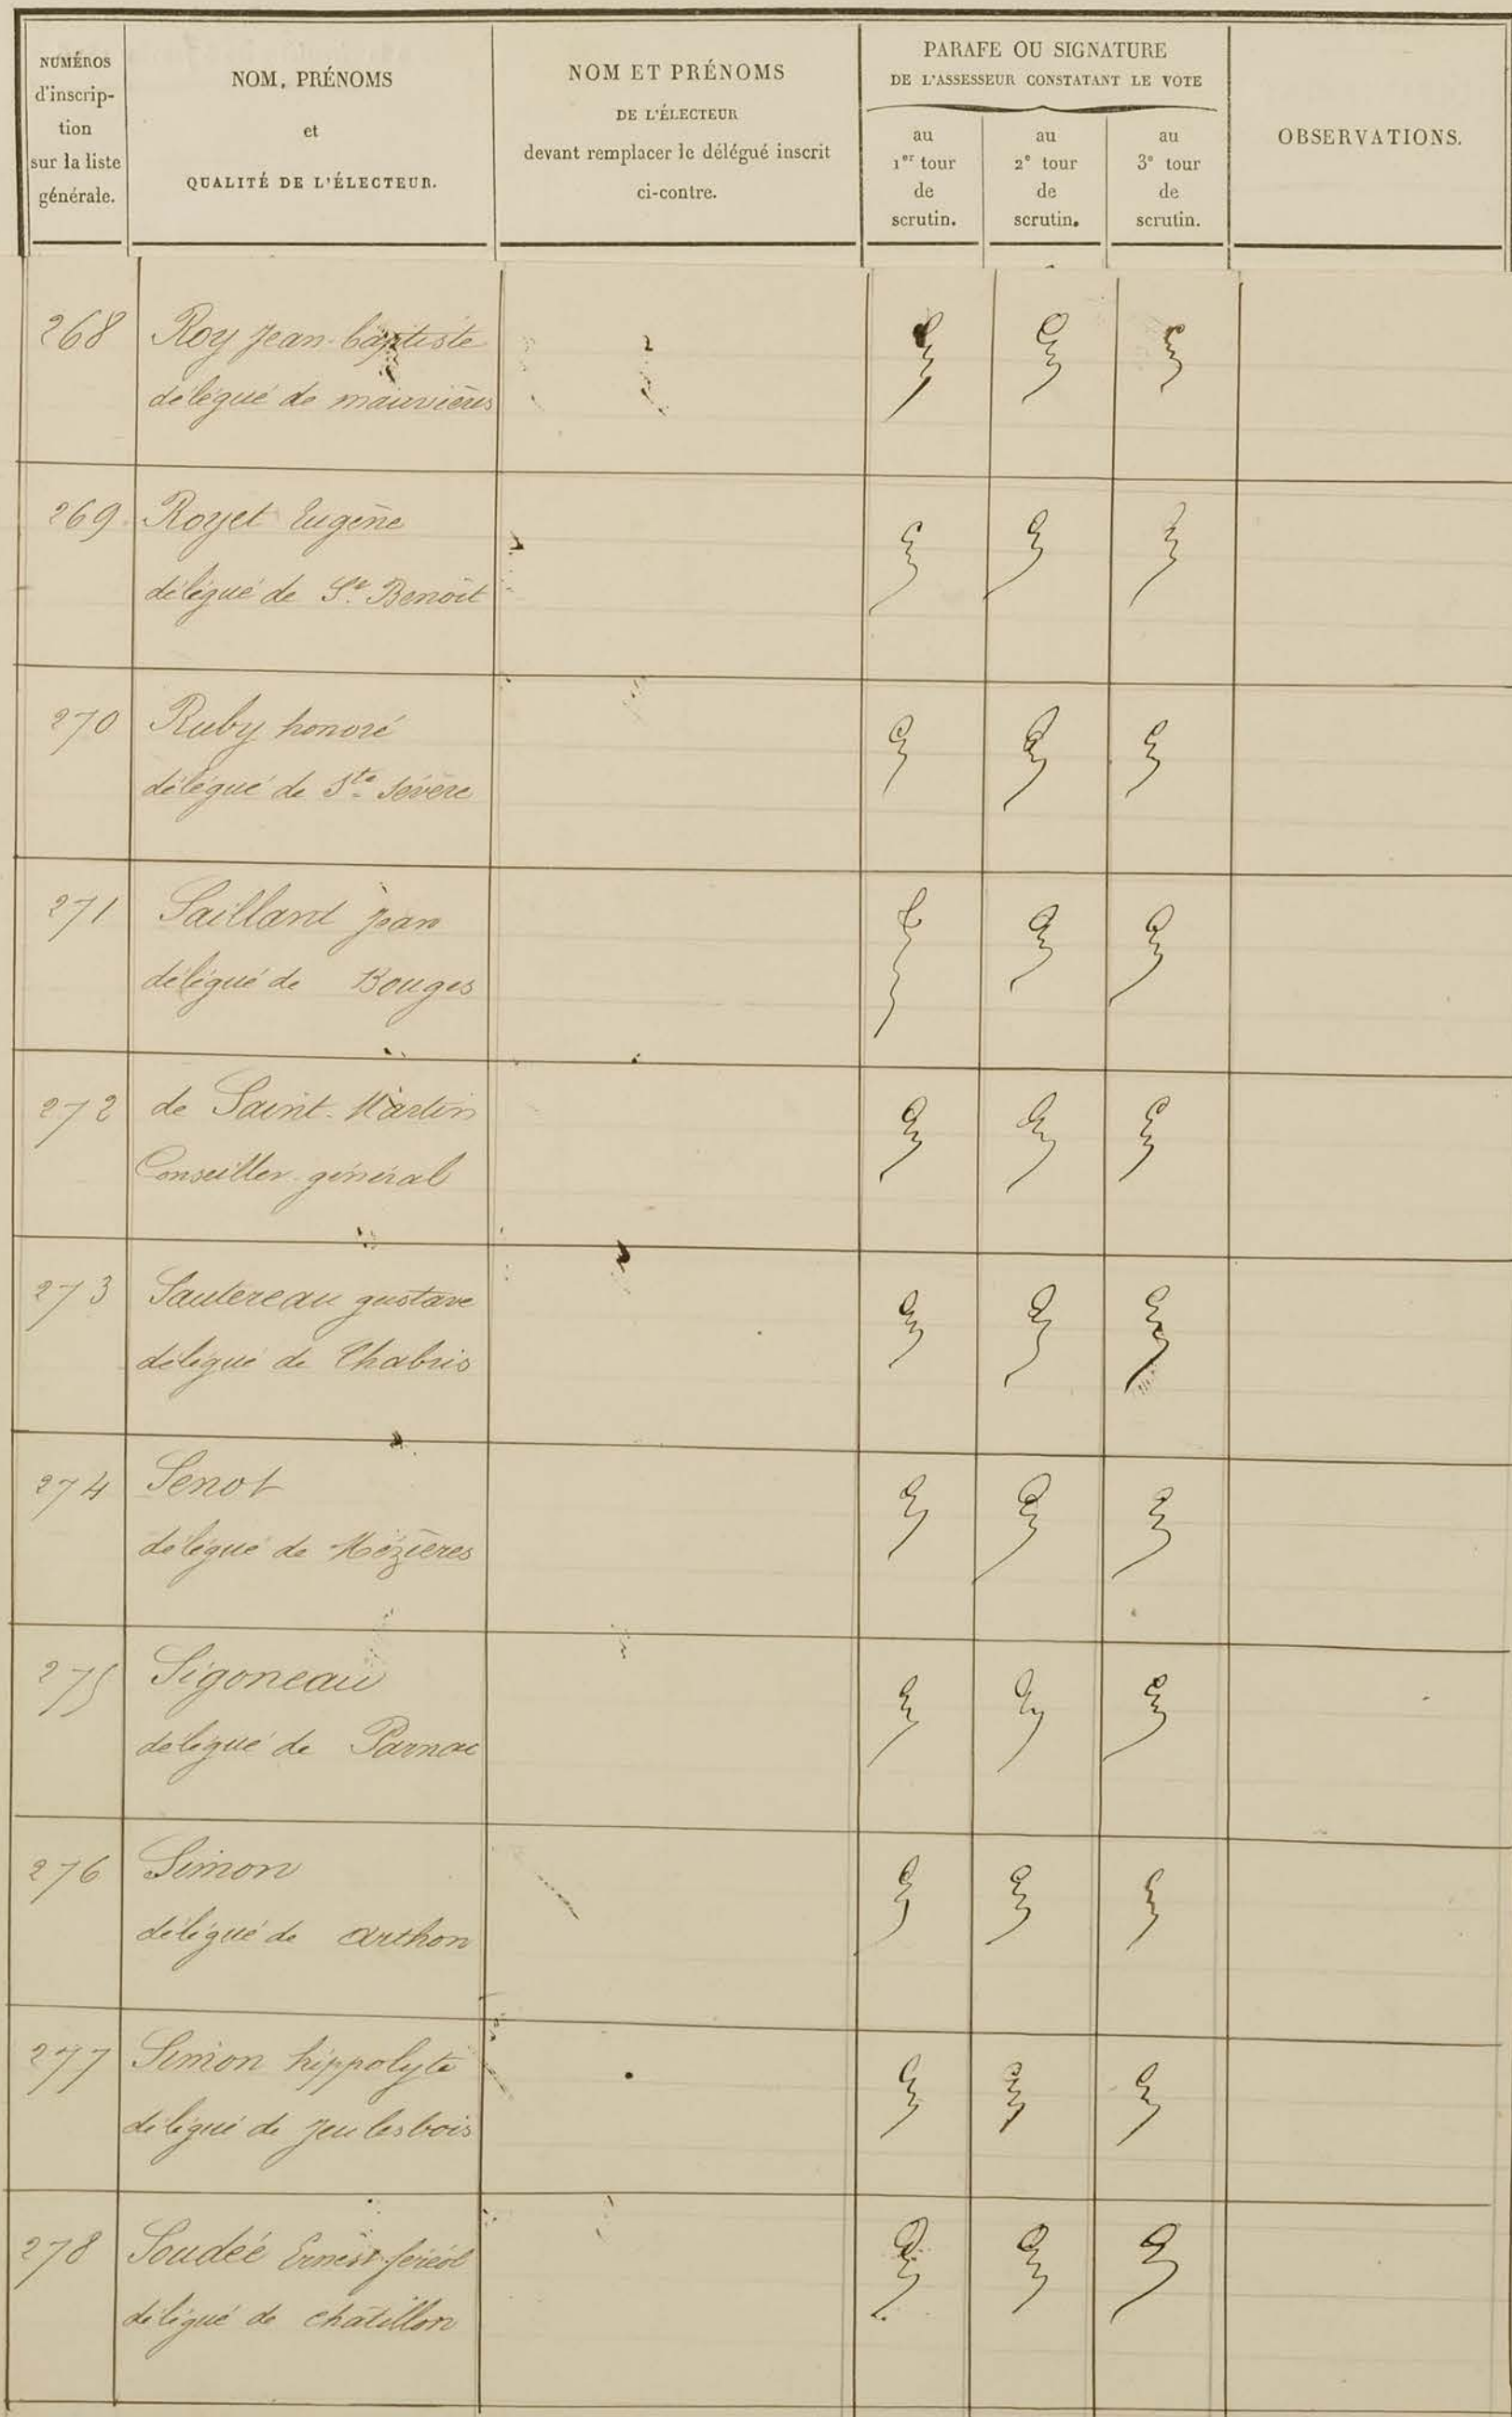 NUMÉROS
d'inscrip-
tion
sur la liste
générale.
NOM, PRÉNOMS
et
QUALITÉ DE L'ÉLECTEUR.
NOM ET PRÉNOMS
DE L'ÉLECTEUR
devant remplacer le délégué inscrit
ci-contre.
PARAFE OU SIGNATURE
DE L'ASSESSEUR CONSTATANT LE VOTE
au
1er tour
de
scrutin.
au
2e tour
de
scrutin.
au
3e tour
de
scrutin.
OBSERVATIONS.
268 Roy Jean-baptiste
délégué de mauvières
269 Royet Eugène
délégué de St. Benoît
270 Ruby honoré
délégué de Ste Sévère
271 Saillard Jean
délégué de Bouges
272 de Saint-Martin
Conseiller général
273 Sautereau gustave
délégué de Chabris
274 Senot
délégué de Mézières
275 Sigoneau
délégué de Parnac
276 Simon
délégué de arthon
277 Simon hippolyte
délégué de jeu les bois
278 Soudée Ernest feréol
délégué de châtillon